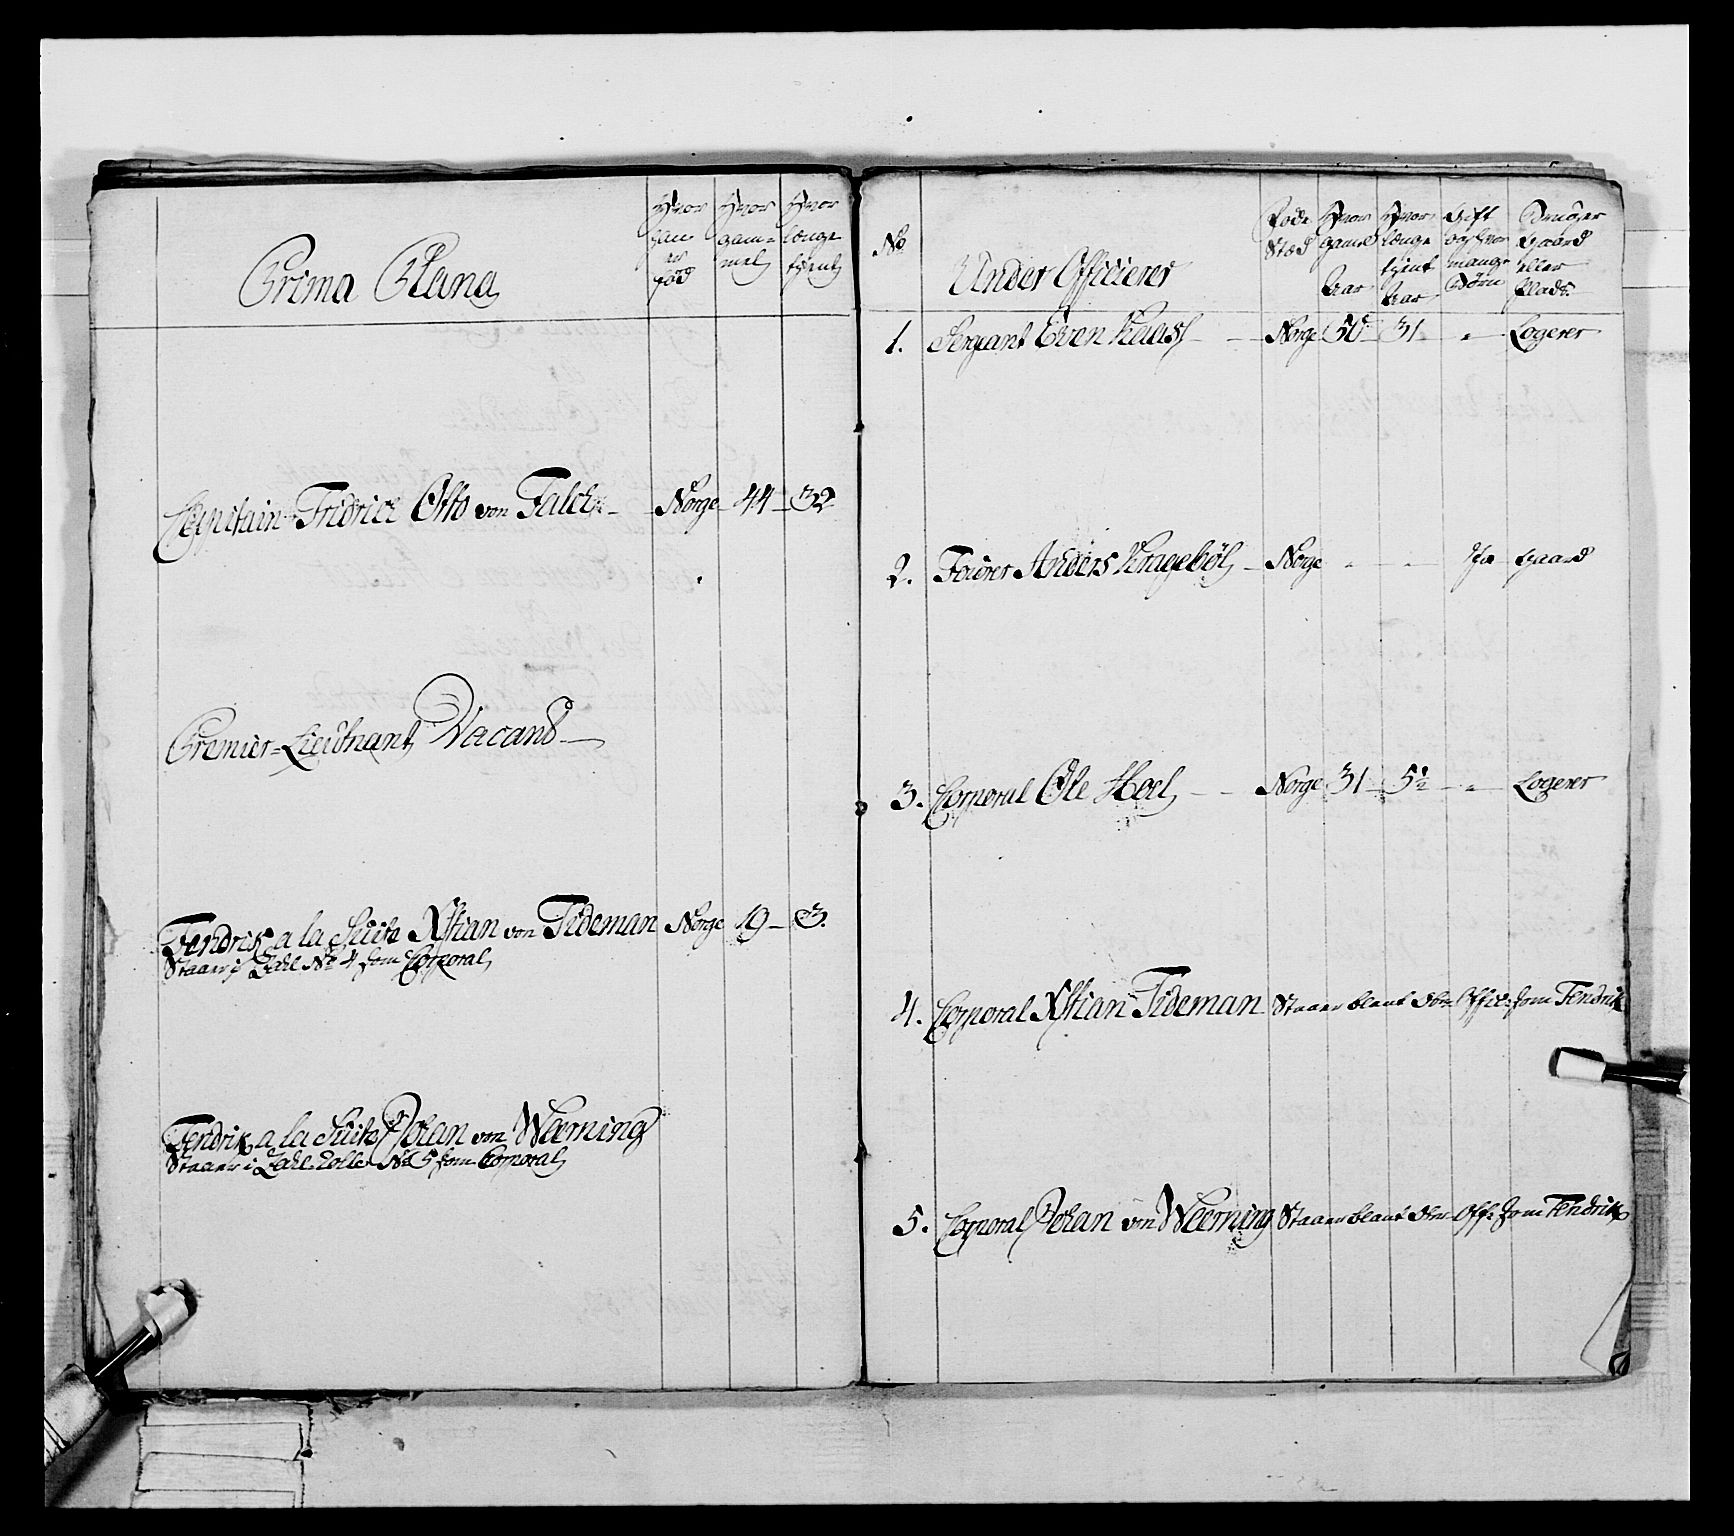 Prima Plana
Hvor han er fød
Hvor gam=mel
Hvor længe tjent
Capitain Fridrich Otto von Falch Norge 44 32
Premier=Lieutnant Vacand
Fendrik a la Suite Xstian von Tideman Norge 19 3.
Staaer i No 4 som Corporal
Fendrik a la Suite Johan von Weerning
Staaer i Rolle No 5 som Corporal
No
Under Officierer
Føde Stæd
Hvor gamel Aar
Hvor længe tjent Aar
Gift og hvor mange Børn
Bruger Gaard eller Plads
1. Sergiant Even Norge 50 31 " Logerer
2. Fourer Anders Kragebøl Norge " " Ja Gaard
3. Corporal Ole Hoel Norge 31 5½ " Logerer
4. Corporal Xstian Tideman Staaer blant Ober Offic: som Fendrik
5. Corporal Johan von Weerning Staaer blant Ober Off: som Fendrik